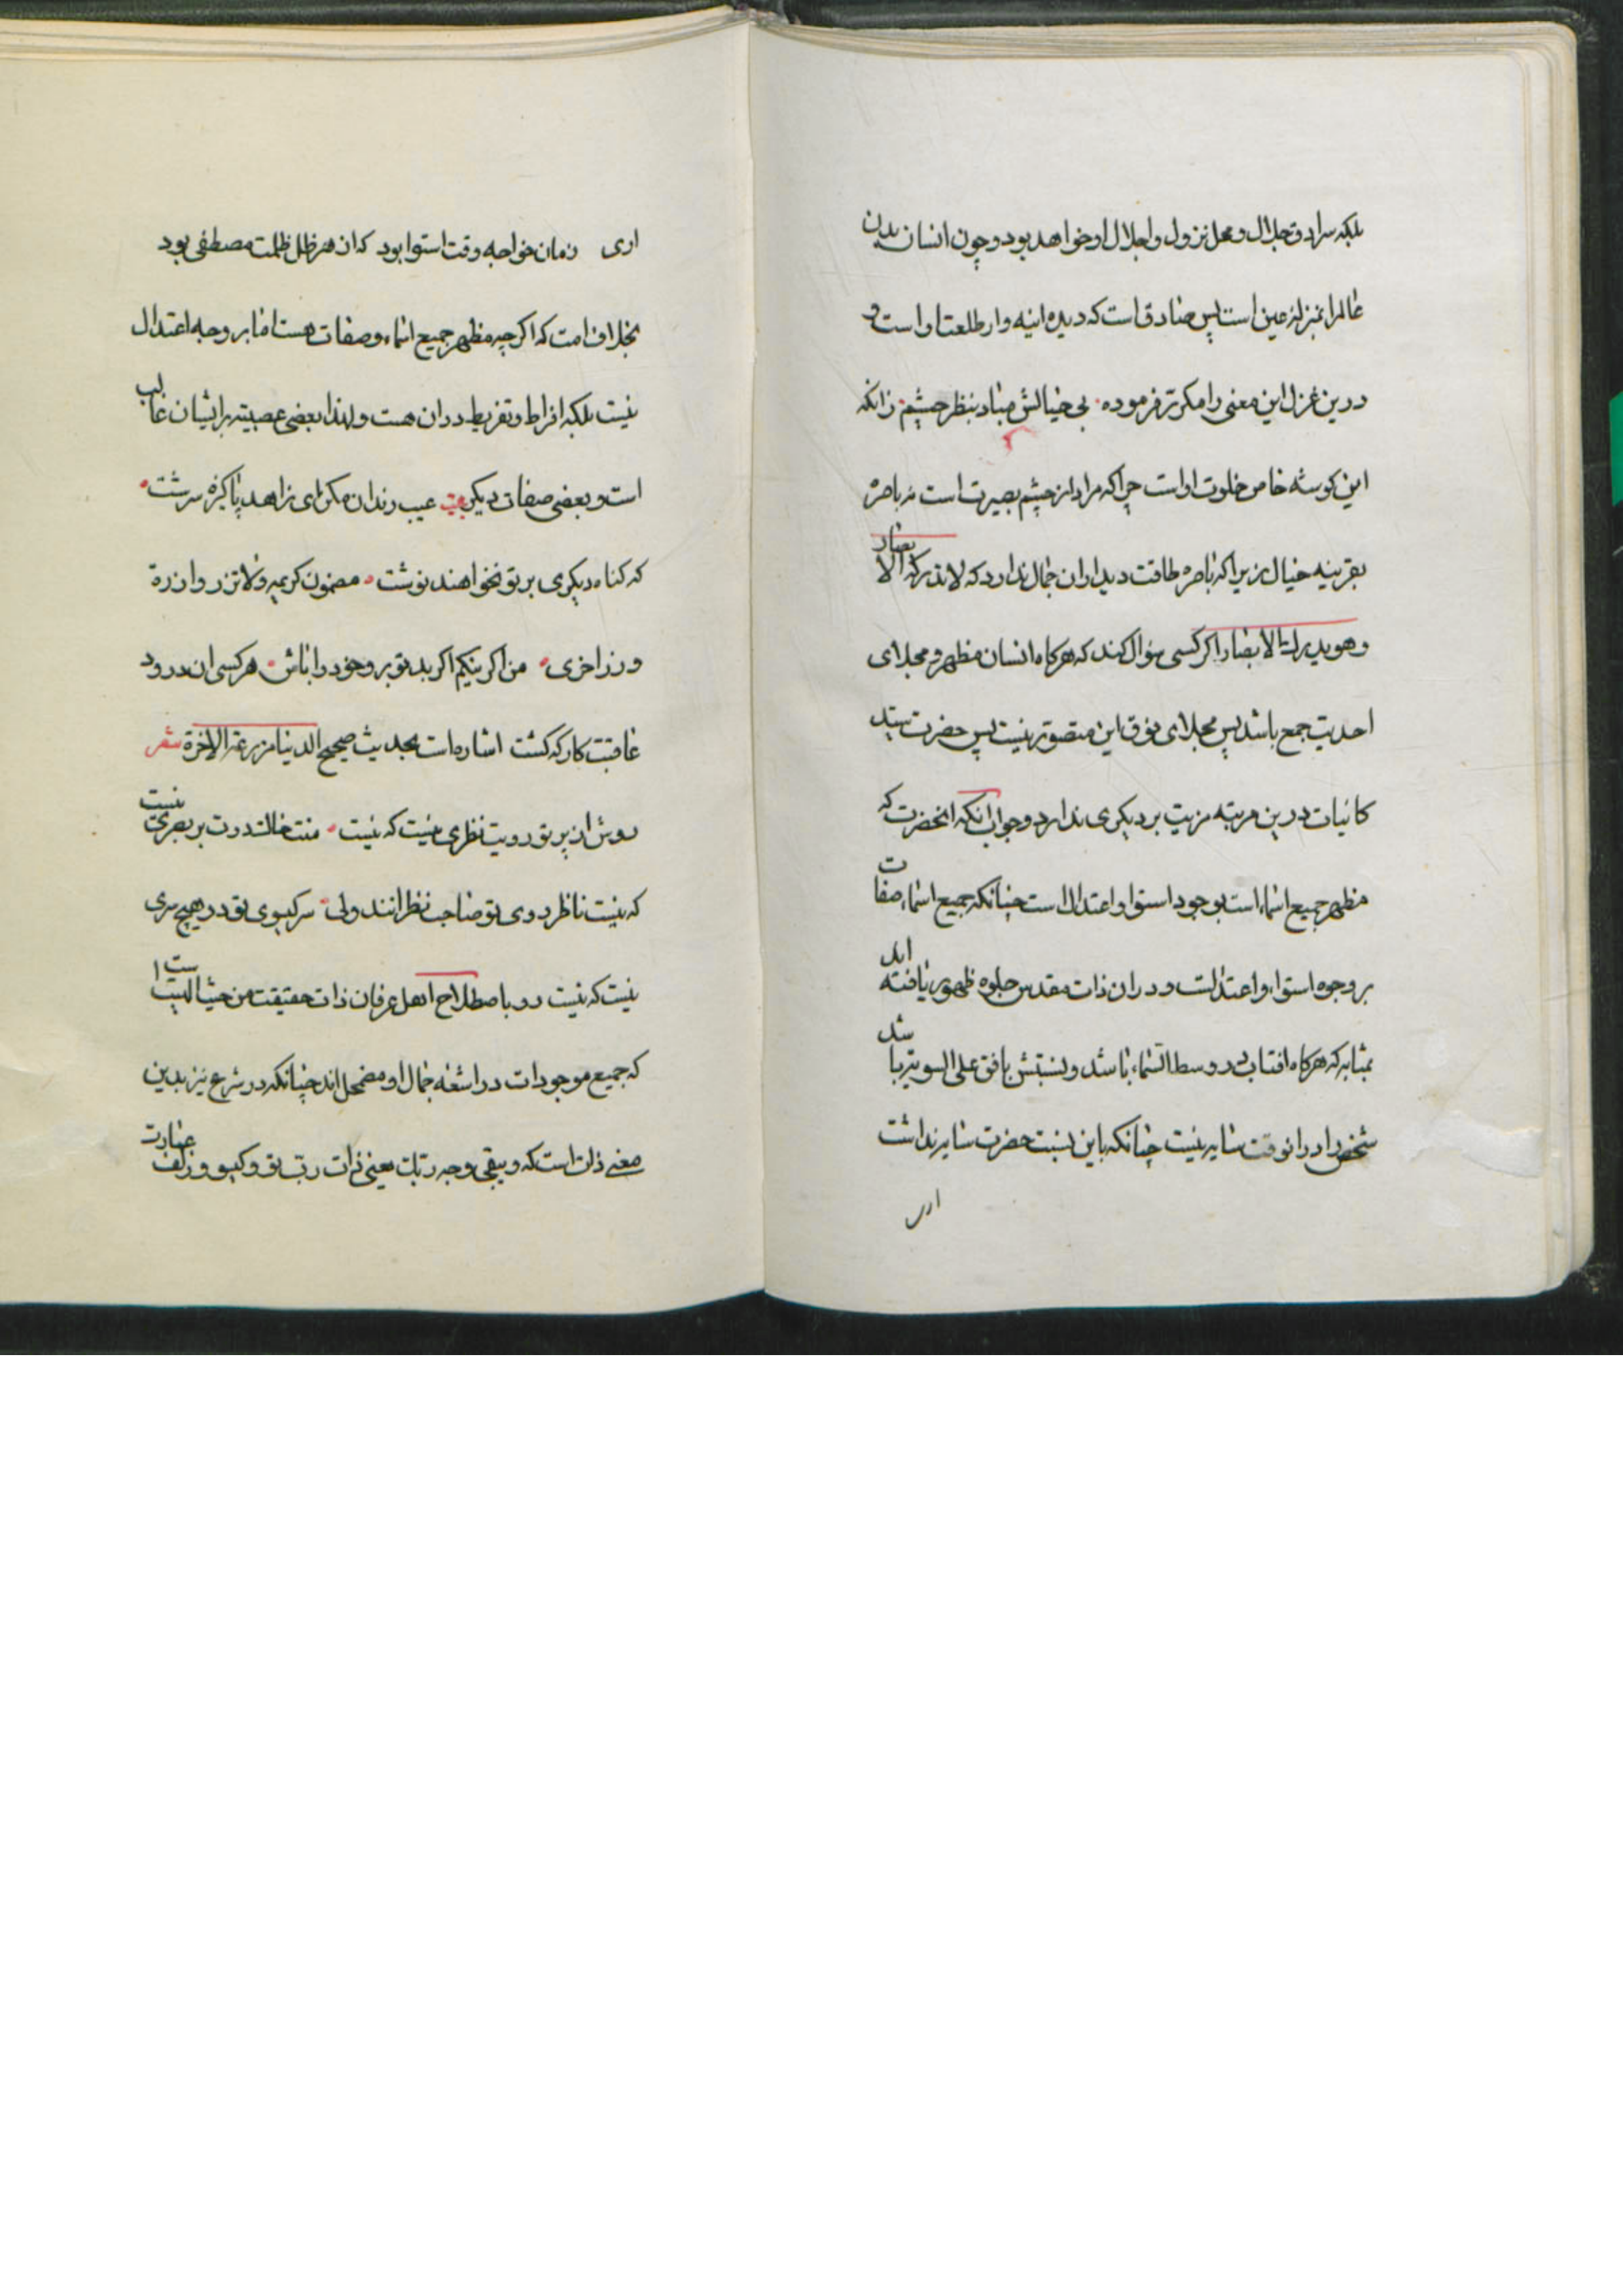 بلکه سرادق جلال و محل نزول و اجلال او خواهد بود و چون انسان بدن
عالم را بمنزله عین است پس صادق است که دیده اینه دار طلعت او است و
درین غزل این معنی را مکرّر فرموده بی خیالش مباد منظر چشم زانکه
این کوشه خاص خلوت او است چراکه مراد از چشم بصیرت است نه باصره
بقرینه خیال زیراکه باصره طاقت دیدار ان جمال ندارد که لا تدرکه الابصار
و هو یدرک الابصار اکر کسی سؤال کند که هرکاه انسان مظهر و مجلای
احدیت جمع باشد پس مجلای فوق این متصور نیست پس حضرت سید
کاینات درین مرتبه مزیت بر دیکری ندارد و جواب انکه انحضرت که
مظهر جمیع اسماء است بوجود استوا و اعتدال است چنانکه جمیع اسماء صفات
بر وجوه استواء و اعتدالست و در ان ذات مقدس جلوه ظهور یافته اند
بمثابه که هرکاه افتاب در وسط السّماء باشد و نسبتش بافق علی السویه باشد
شخص را در انوقت سایه نیست چنانکه باین نسبت حضرت سایه نداشت
اری
اری زمان خواجه وقت استوا بود که از هر ظل ظلمت مصطفی بود
بخلاف امت که اکرچه مظهر جمیع اسماء و صفات هست اما بر وجه اعتدال
نیست بلکه افراط و تفریط در ان هست و لهذا بعضی عصبیته بر ایشان غالب
است و بعضی صفات دیکر بیت عیب رندان مکن ای زاهد پاکیزه سرشت
که کناه دیکری بر تو نخواهند نوشت مضمون کریمه و لا تزر وازرة
وزر اخری من اکر نیکم اکر بد تو برو خود را باش هر کسی ان درود
عاقبت کار که کشت اشاره است بحدیث صحیح الدنیا مزرعة الاخرة شعر
روشن از پرتو رویت نظری نیست که نیست منت خاک درت بر بصری نیست
که نیست ناظر روی تو صاحب نظرانند ولی سر کیسوی تو در هیچ سری
نیست که نیست رو باصطلاح اهل عرفان ذات حقیقت من حیث است
که جمیع موجودات در اشعه جمال او مضمحل اند چنانکه در شرع نیز بدین
معنی ذات است که و یبقی وجه ربک یعنی ذات رب تو و کیسو و زلف عبارت